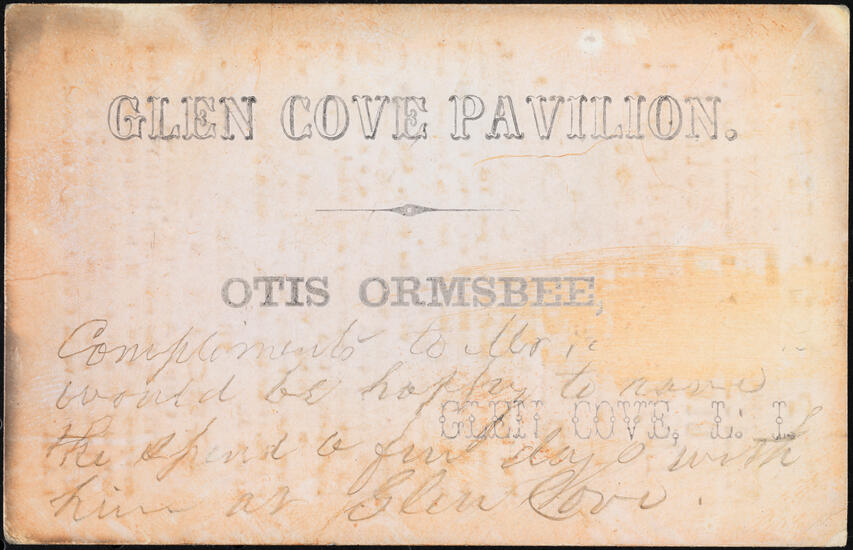 GLEN COVE PAVILION.
OTIS ORMSBEE,
Compliments to Mr.
would be happy to have
GLEN COVE, L. I.
the spend a few days with
him at Glen Cove.